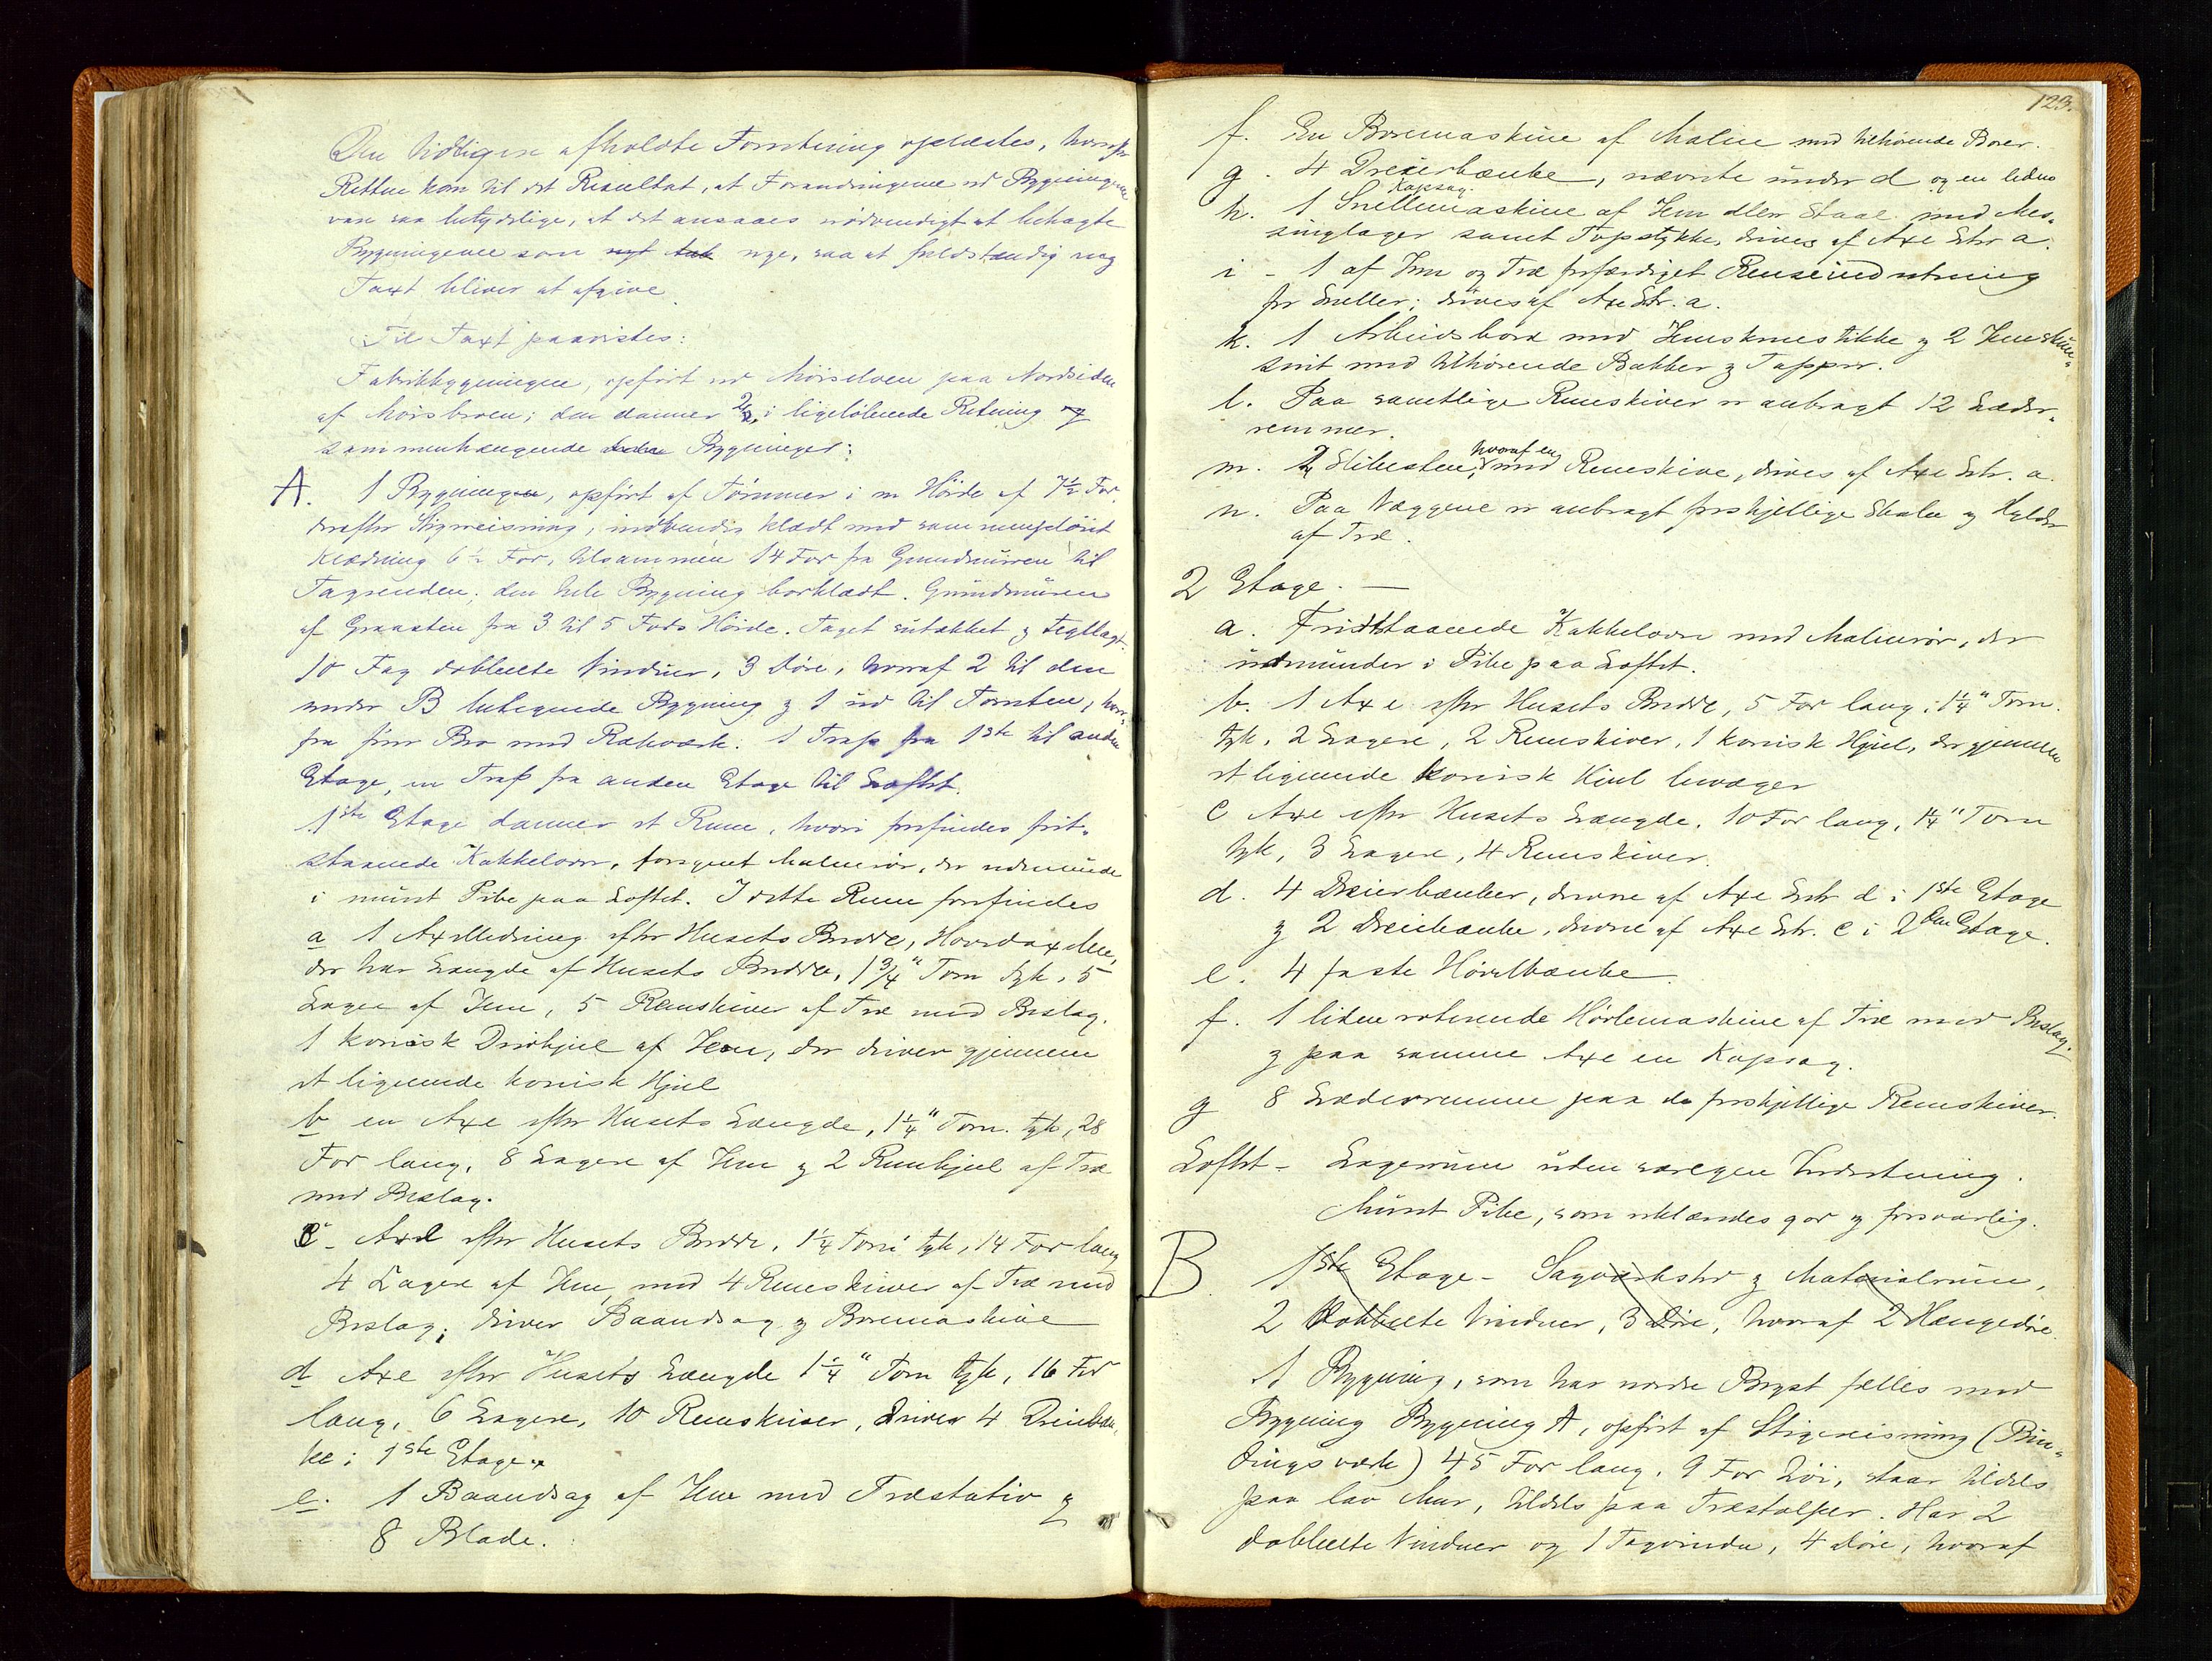 Den tidligere afholdte Forretning oplæstes, hvorefter
Retten kom til det Resultat, at Forandringerne ved Bygningerne
vare saa betydelige, at det ansaaes nødvendigt at betragte
Bygningerne som nye, saa at fuldstændig ny
Taxt bliver at afgive.
Til Taxt paavistes:
Fabrikbygningen, opført ved Møiselven paa Nordsiden
af Moisbroen; den danner 2 i ligeløbende Retning og
sammenhængende Bygninger:
A. 1 Bygning, opført af Tømmer i en Høide af 7½ For.
derefter Stigreisning, indvendig klædt med sammenpløiet
Klædning 6½ For, tilsammen 14 For fra Grundmuren til
Tagrenden; den hele Bygning bordklædt. Grundmuren
af Graasten fra 3 til 5 Fods Høide. Taget sutækket og teglagt.
10 Fag dobbelte Vinduer, 3 Døre, hvoraf 2 til den
under B betegnede Bygning og 1 ud til Tomten, hvor-
fra fører Bro med Rækværk. 1 Trap fra 1ste til anden
Etage, en Trap fra anden Etage til Loftet.
1ste Etage danner et Rum, hvori forefindes frit-
staaende Kakkelovn, forsynet Malmrør, der udmunde
i muret Pibe paa Loftet. I dette Rum forefindes
a 1 Axelledning efter Husets Bredde, Hovedaxelen,
der har Længde af Husets Bredde, 1 3/4" Tom tyk, 5
Lagere af Jern, 5 Remskiver af Træ med Beslag.
1 konisk Drivhjul af Jern, der driver gjennem
et lignende konisk Hjul
b en Axe efter Husets Længde, 1¼" Tom. tyk, 28
For lang, 8 Lagere af Jern og 2 Remhjul af Træ
med Beslag.
c - Axel efter Husets Bredde, 1¼ Tom tyk, 14 For lang
4 Lagere af Jern, med 4 Remskiver af Træ med
Beslag; driver Baandsag og Boremaskine
d Axe efter Husets Længde 1¼" Tom tyk, 16 For
lang, 6 Lagere, 10 Remskiver, driver 4 Dreiebæn-
ke i 1ste Etage.
e. 1 Baandsag af Jern med Træstativ og
8 Blade.
123.
f. En Boremaskine af Malm med tilhørende Borer.
g. 4 Dreierbænke, nævnte under d og en liden
Kapsag.
h. 1 Snellemaskine af Jern eller Staal med Mes-
singlager samt Topstykke, drives af Axe Litr a.
i - 1 af Jern og Træ forfærdiget Renseindretning
for Sneller; drives af Axe Litr. a.
k. 1 Arbeidsbord med Jernskruestikke og 2 Jernskrue-
snit med tilhørende Bakker og Tapper.
l. Paa samtlige Remskiver er anbragt 12 Læder-
remmer.
m. 2 Slibestene, hvoraf en med Remskive, drives af Axe Litr. a.
n. Paa Væggene er anbragt forskjellige Skabe og Hylder
af Træ.
2 Etage. —
a. Fritstaaende Kakkelovn med Malmrør, der
udmunder i Pibe paa Loftet.
b. 1 Axe efter Husets Bredde, 5 For lang, 1¼" Tom.
tyk, 2 Lagere, 2 Remskiver, 1 konisk Hjul, der gjennem
et lignende konisk Hjul bevæger
c Axe efter Husets Længde, 10 For lang, 1¼" Tom
tyk, 3 Lagere, 4 Remskiver.
d. 4 Dreierbænker, drevne af Axe Litr d i 1ste Etage
og 2 Dreiebænke, drevne af Axe Litr. c i 2den Etage.
e. 4 faste Høvelbænke
f. 1 liden roterende Høvlemaskine af Træ med Beslag,
og paa samme Axe en Kapsag.
g 8 Læderremme paa de forskjellige Remskiver.
Loftet - Lagerrum uden særegen Indretning.
Muret Pibe, som erklæredes god og forsvarlig.
B. 1ste Etage - Sagværksted og Materialrum,
2 dobbelte Vinduer, 3 Døre, hvoraf 2 Hængedøre.
1 Bygning, som har nordre Bryst fælles med
Bygning Bygning A, opført af Stigreisning (Bin-
dingsværk) 45 For lang, 9 For høi, staar tildels
paa lav Mur, tildels paa Træstolper. Har 2
dobbelte Vinduer og 1 Tagvindu, 4 Døre, hvoraf